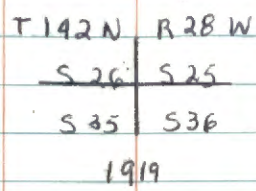 T 142 N R 28 W
S 26 S 25
S 35 S 36
1919